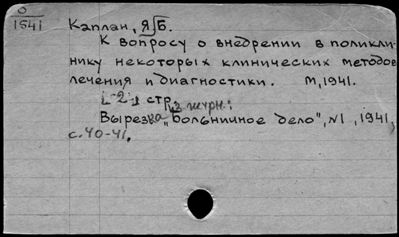 О
1541
Каплан, Я.Б.
К вопросу о внедрении в поликли-
нику некоторых клинических методов
лечения и диагностики. М, 1941.
[2] стр.
Вырезка из журн.: "Больничное дело", №1, 1941,
с. 40-41.